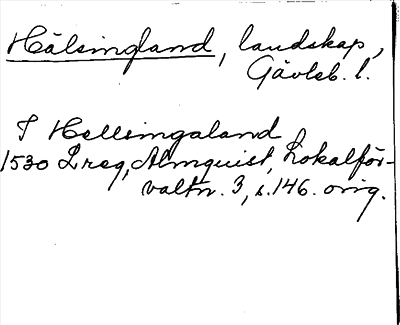 Hälsingland, landskap,
Gävleb. l.
I Hellsingaland
1530 2reg, Almquist, Lokalför-
valtn. 3, s. 146. orig.